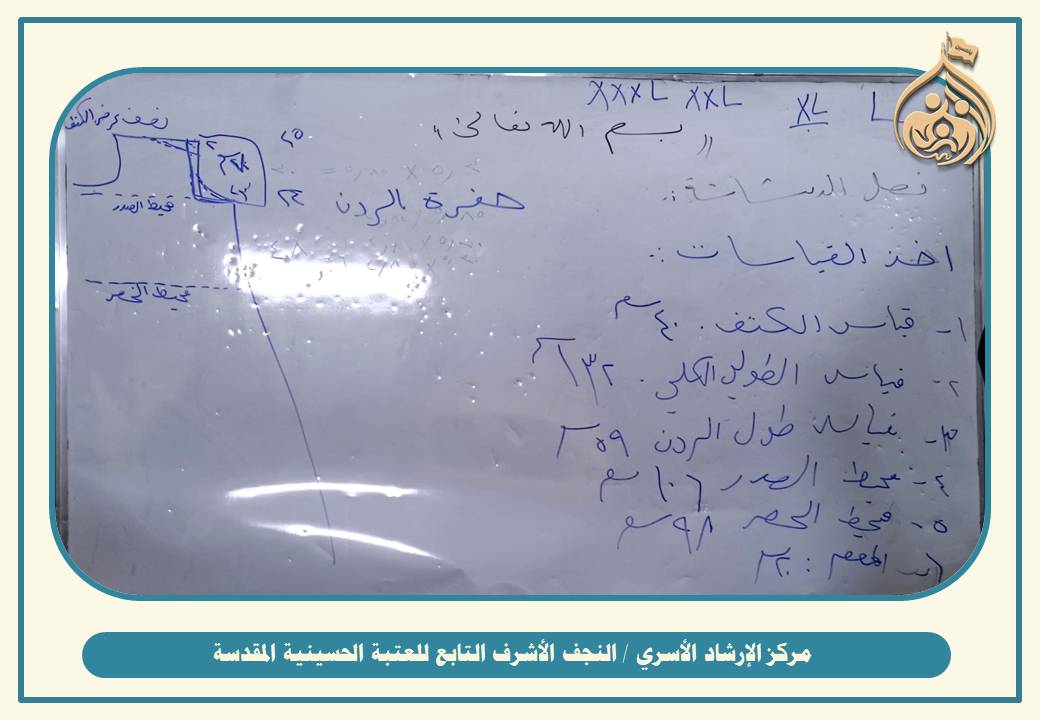 L XL XXL XXXL
"بسم الله تعالى"
فصل الدشاشة :.
اخذ القياسات :.
١- قياس الكتف . ٤٠ سم
٢- قياس الطول الكلي . ١٣٢ سم
٣- قياس طول الردن ٥٩ سم
٤- محيط الصدر ١٠٦ سم
٥- محيط الخصر ٩٨ سم
المعصم : ٢٠ سم
حفرة الردن ٢٤
٢٥
نصف عرض الكتف
محيط الصدر
محيط الخصر
مركز الإرشاد الأسري / النجف الأشرف التابع للعتبة الحسينية المقدسة